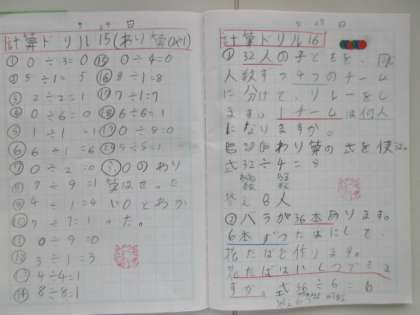 計算ドリル15(わり算0や1)
① 0÷3=0
② 5÷1=5
③ 2÷2=1
④ 0÷6=0
⑤ 1÷1=1
⑥ 6÷1=6
⑦ 0÷2=0
⑧ 9÷9=1
⑨ 4÷4=1
⑩ 7÷7=1
⑪ 0÷9=0
⑫ 3÷1=3
⑬ 4÷4=1
⑭ 8÷8=1
⑮ 0÷4=0
⑯ 8÷1=8
⑰ 7÷1=7
⑱ 6÷6=1
⑲ 0÷5=0
⑳ 5÷5=1
0のわり
算は
0とわか
った。
計算ドリル16
① 32人の子どもを、同じ
人数ずつ4つのチーム
に分けて、リレーをし
ます。1チームは何人
になりますか。
わり算の式を使
式32÷4=8
答え 8人
② バラが36本あります。
6本ずつたばにして
花たばを作ります。
花たばはいくつできま
すか。式36÷6=6